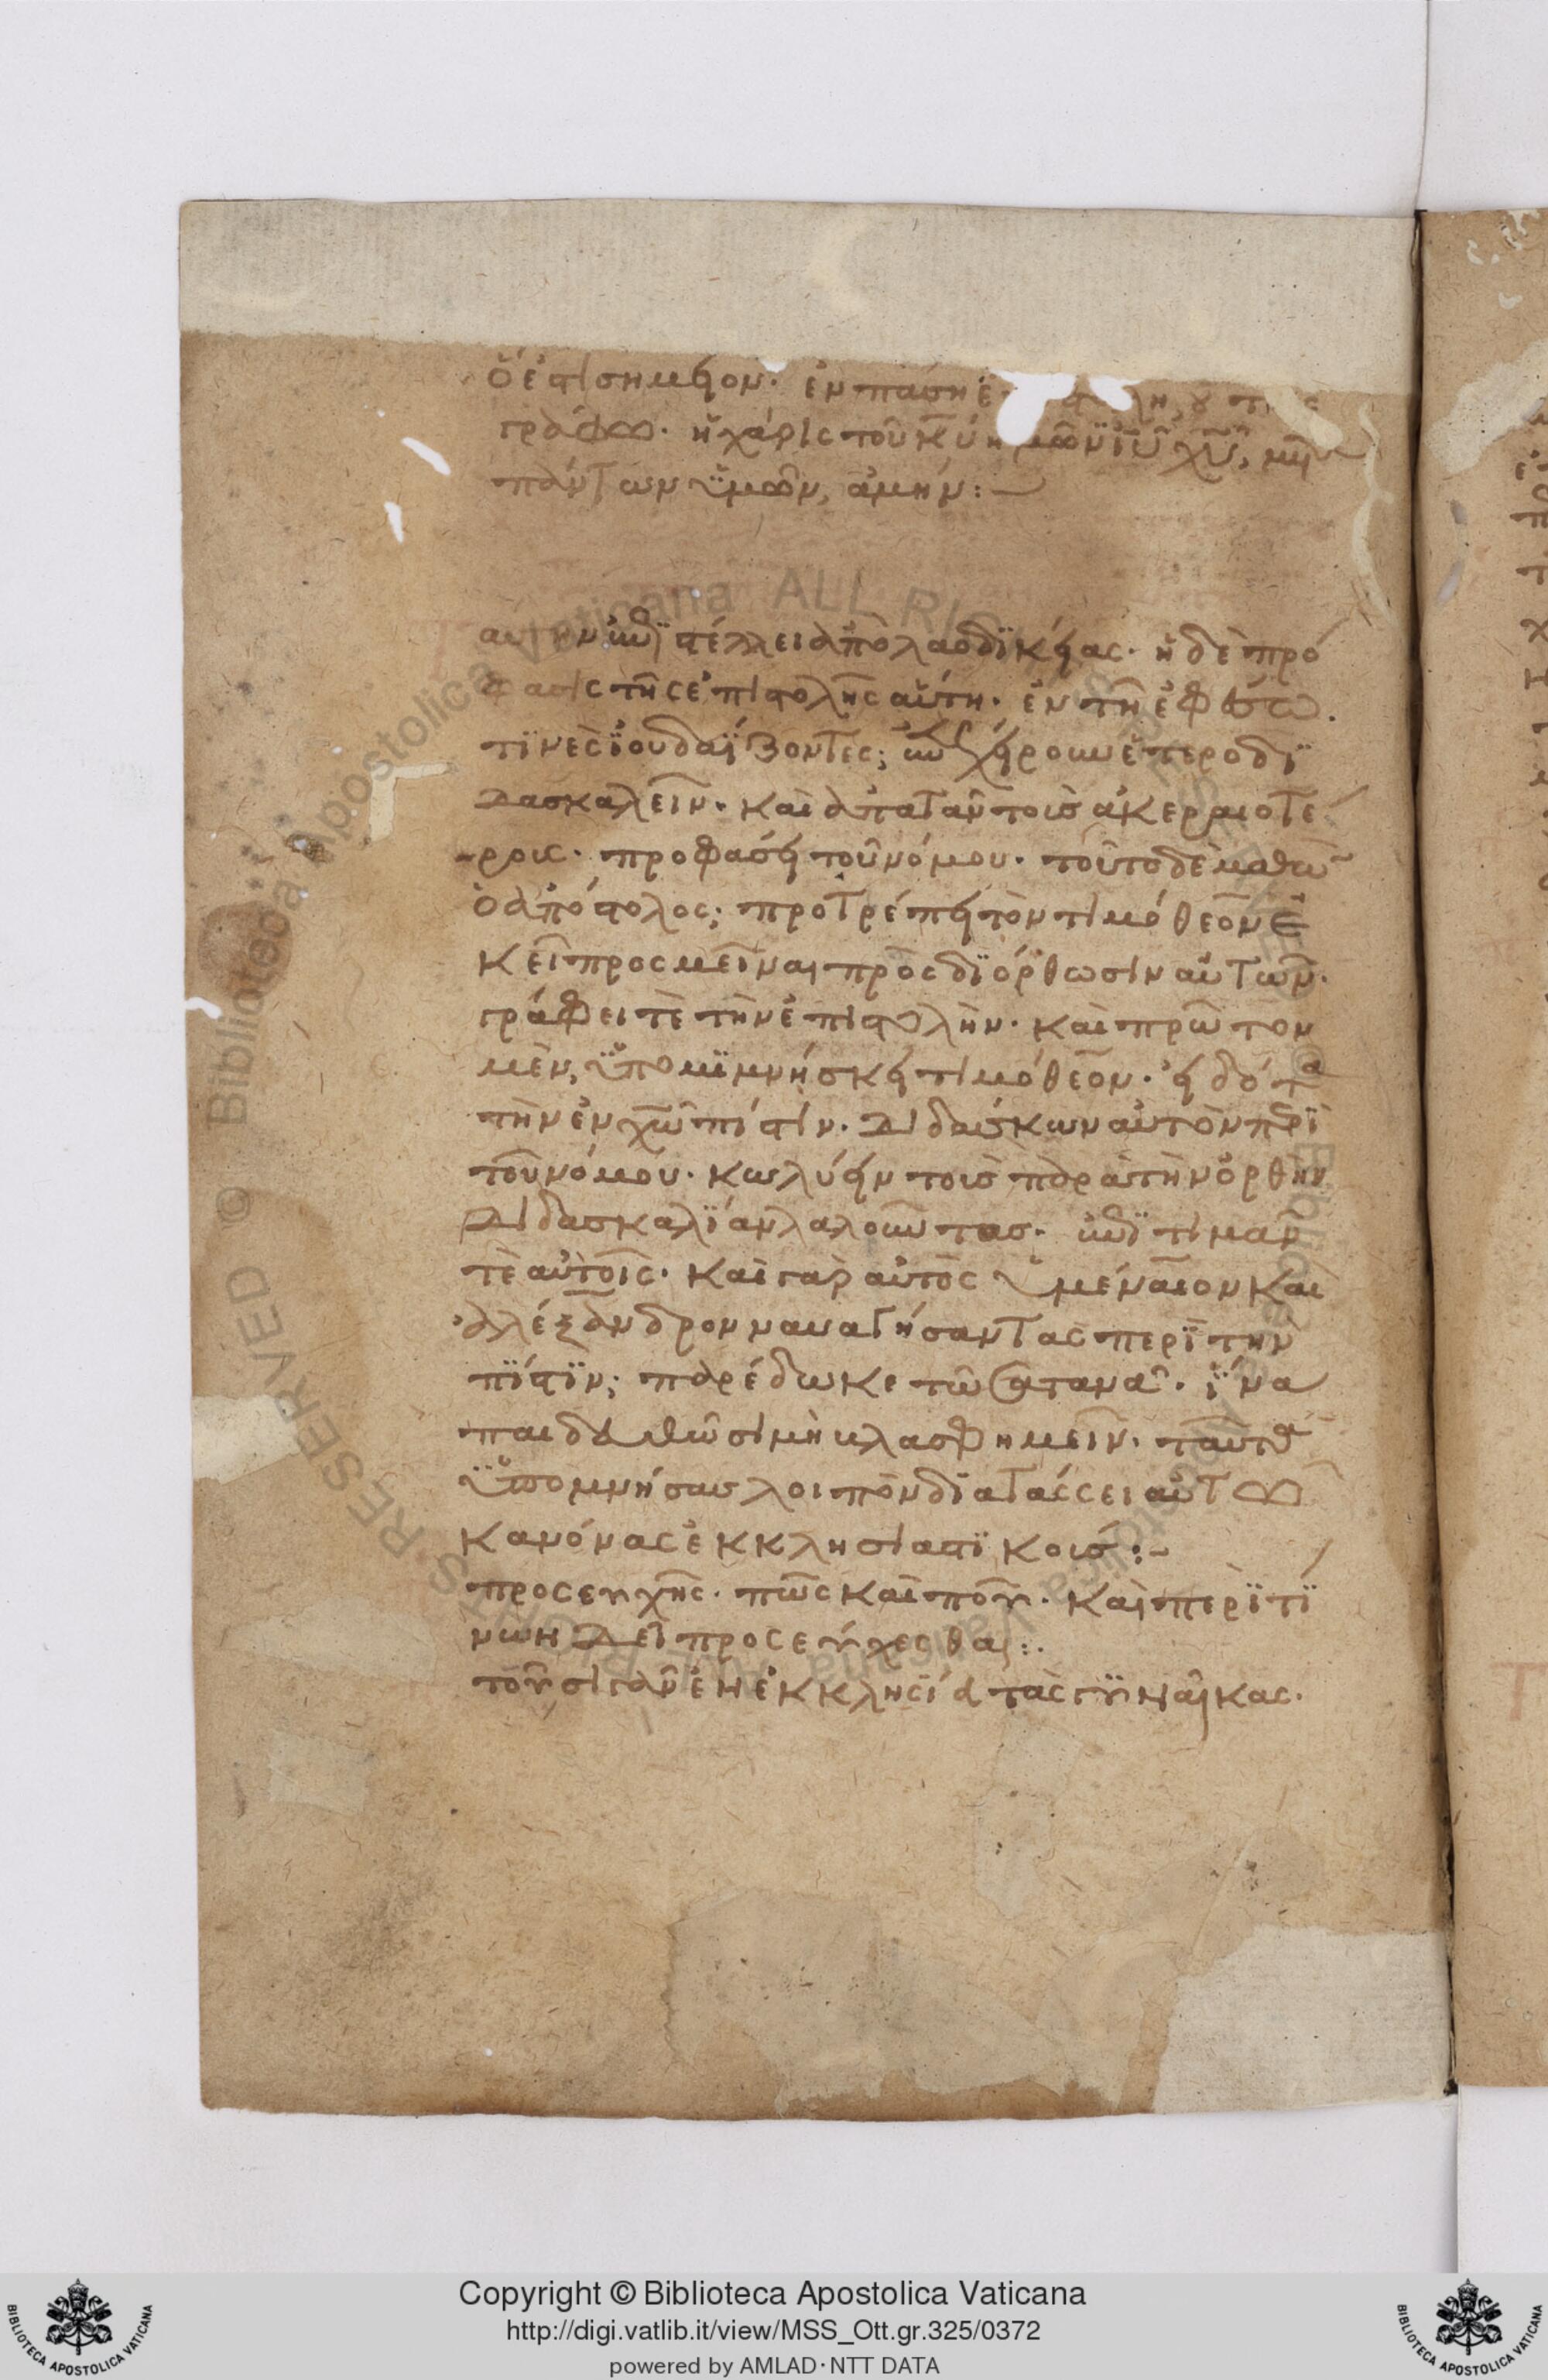 ὅ ἐστι σημεῖον· ἐν πάση ἐ στολη, οὕτως
γράφω· ἡ χάρις τοῦ κυ ἡμῶν ϊυ χυ, μετὰ
πάντων ὑμῶν, ἀμήν:—
αυτην ἐπιστέλλει ἀπὸ λαοδϊκείας· ἡ δὲ πρό
φασις τῆς ἐπιστολῆς αὕτη· ἐν τῆ ἐφέσω.
τϊνὲς ϊουδαΐζοντες; ἐπεχείρουν ἑτεροδϊ
δασκαλεῖν· καὶ ἀπατᾶν τοὶς ἀκεραιοτέ
ροις· προφάσει τοῦ νόμου· τοῦτο δὲ μαθὼν
ὁ ἀπόστολος; προτρέπει τὸν τιμόθεον ἐ
κεῖ προσμεῖναι πρὸς δϊόρθωσιν αὐτῶν·
γράφει τὲ τὴν ἐπιστολὴν· καὶ πρῶτον
μὲν, ὑπομϊμνήσκει τιμόθεον· εἰδότα
τὴν ἐν χω πίστιν· διδάσκων αὐτὸν περὶ
τοῦ νόμου· κωλύειν τοὶς παρὰ τὴν ὀρθὴν
διδασκαλΐαν λαλοῦντας· ἐπιτιμᾶν
τὲ αὐτοῖς· καὶ γὰρ αὐτὸς ὑμέναιον καὶ
ἀλέξανδρον ναυαγήσαντας περὶ τὴν
πΐστϊν; παρέδωκε τῶ σατανᾶ· ἵνα
παιδευθῶσι μὴ βλασφημεῖν· ταῦτα
ὑπομνήσας λοιπὸν δϊατάσσει αὐτῶ
κανόνας ἐκκλησιαστϊκοίς:-
προσευχῆς· πῶς καὶ ποῦ· καὶ περὶ τϊ
νων δεῖ προσεύχεσθαι:.
τοῦ σιγᾶν ἐν ἐκκλησΐα τὰς γυναῖκας·
Copyright © Biblioteca Apostolica Vaticana
http://digi.vatlib.it/view/MSS_Ott.gr.325/0372
powered by AMLAD·NTT DATA
BIBLIOTECA APOSTOLICA VATICANA
BIBLIOTECA APOSTOLICA VATICANA